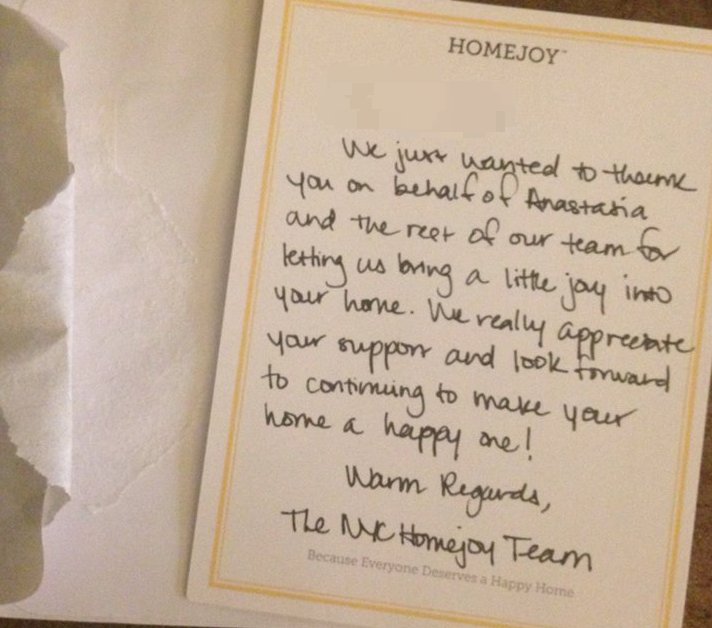 HOMEJOY™
We just wanted to thank
you on behalf of Anastasia
and the rest of our team for
letting us bring a little joy into
your home. We really appreciate
your support and look forward
to continuing to make your
home a happy one!
Warm Regards,
The NYC Homejoy Team
Because Everyone Deserves a Happy Home